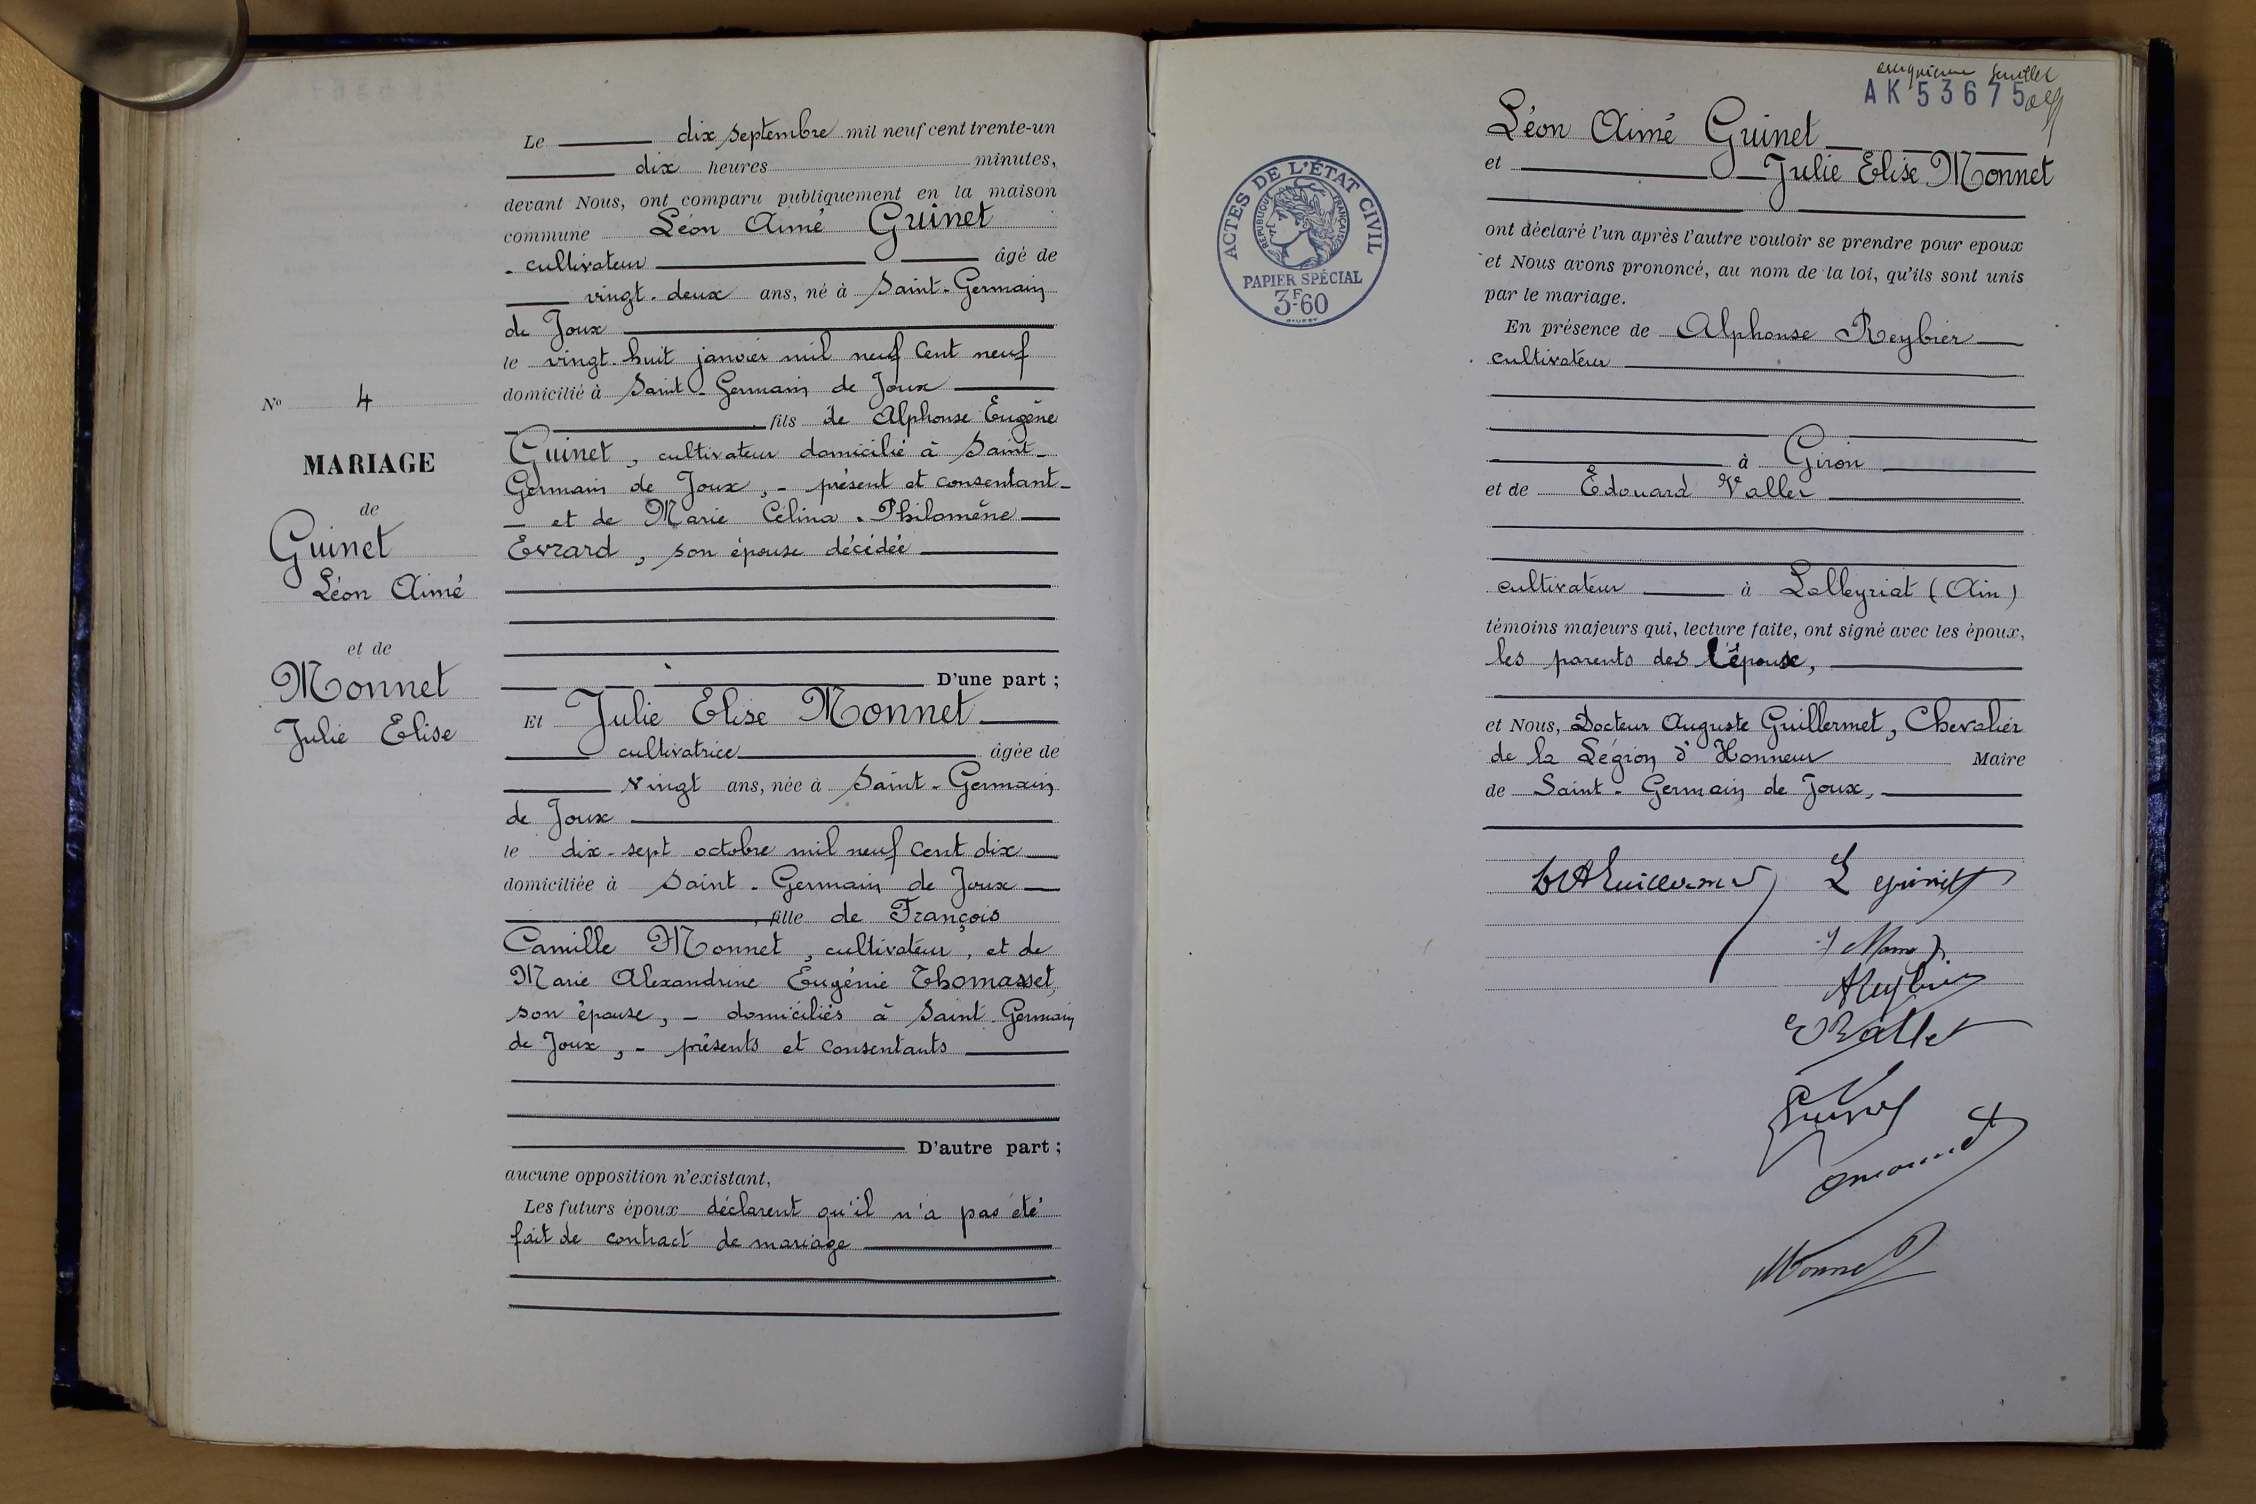 N° 4
MARIAGE
de
Guinet
Léon Aimé
et de
Monnet
Julie Elise
Le dix septembre mil neuf cent trente-un
dix heures minutes,
devant Nous, ont comparu publiquement en la maison
commune Léon Aimé Guinet
cultivateur âgé de
vingt-deux ans, né à Saint-Germain
de Joux
le vingt-huit janvier mil neuf cent neuf
domicilié à Saint-Germain de Joux
fils de Alphonse Eugène
Guinet, cultivateur domicilié à Saint-
Germain de Joux, - présent et consentant -
- et de Marie Célina Philomène
Evrard, son épouse décédée
D'une part ;
Et Julie Elise Monnet
cultivatrice âgée de
vingt ans, née à Saint-Germain
de Joux
le dix-sept octobre mil neuf cent dix
domiciliée à Saint-Germain de Joux
, fille de François
Camille Monnet, cultivateur, et de
Marie Alexandrine Eugénie Thomasset,
son épouse, - domiciliés à Saint-Germain
de Joux, - présents et consentants
D'autre part ;
aucune opposition n'existant,
Les futurs époux déclarent qu'il n'a pas été
fait de contract de mariage
cinquième feuillet
AK53675
ACTES DE L'ÉTAT CIVIL
RÉPUBLIQUE FRANÇAISE
PAPIER SPÉCIAL
3F-60
Léon Aimé Guinet
et Julie Elise Monnet
ont déclaré l'un après l'autre vouloir se prendre pour epoux
et Nous avons prononcé, au nom de la loi, qu'ils sont unis
par le mariage.
En présence de Alphonse Reybier
cultivateur
à Giron
et de Edouard Vallet
cultivateur à Lalleyriat (Ain)
témoins majeurs qui, lecture faite, ont signé avec les époux,
les parents des l'épouse,
et Nous, Docteur Auguste Guillermet, Chevalier
de la Légion d'Honneur Maire
de Saint-Germain de Joux,
L Guinet
E Vallet
Guinet
Monnet